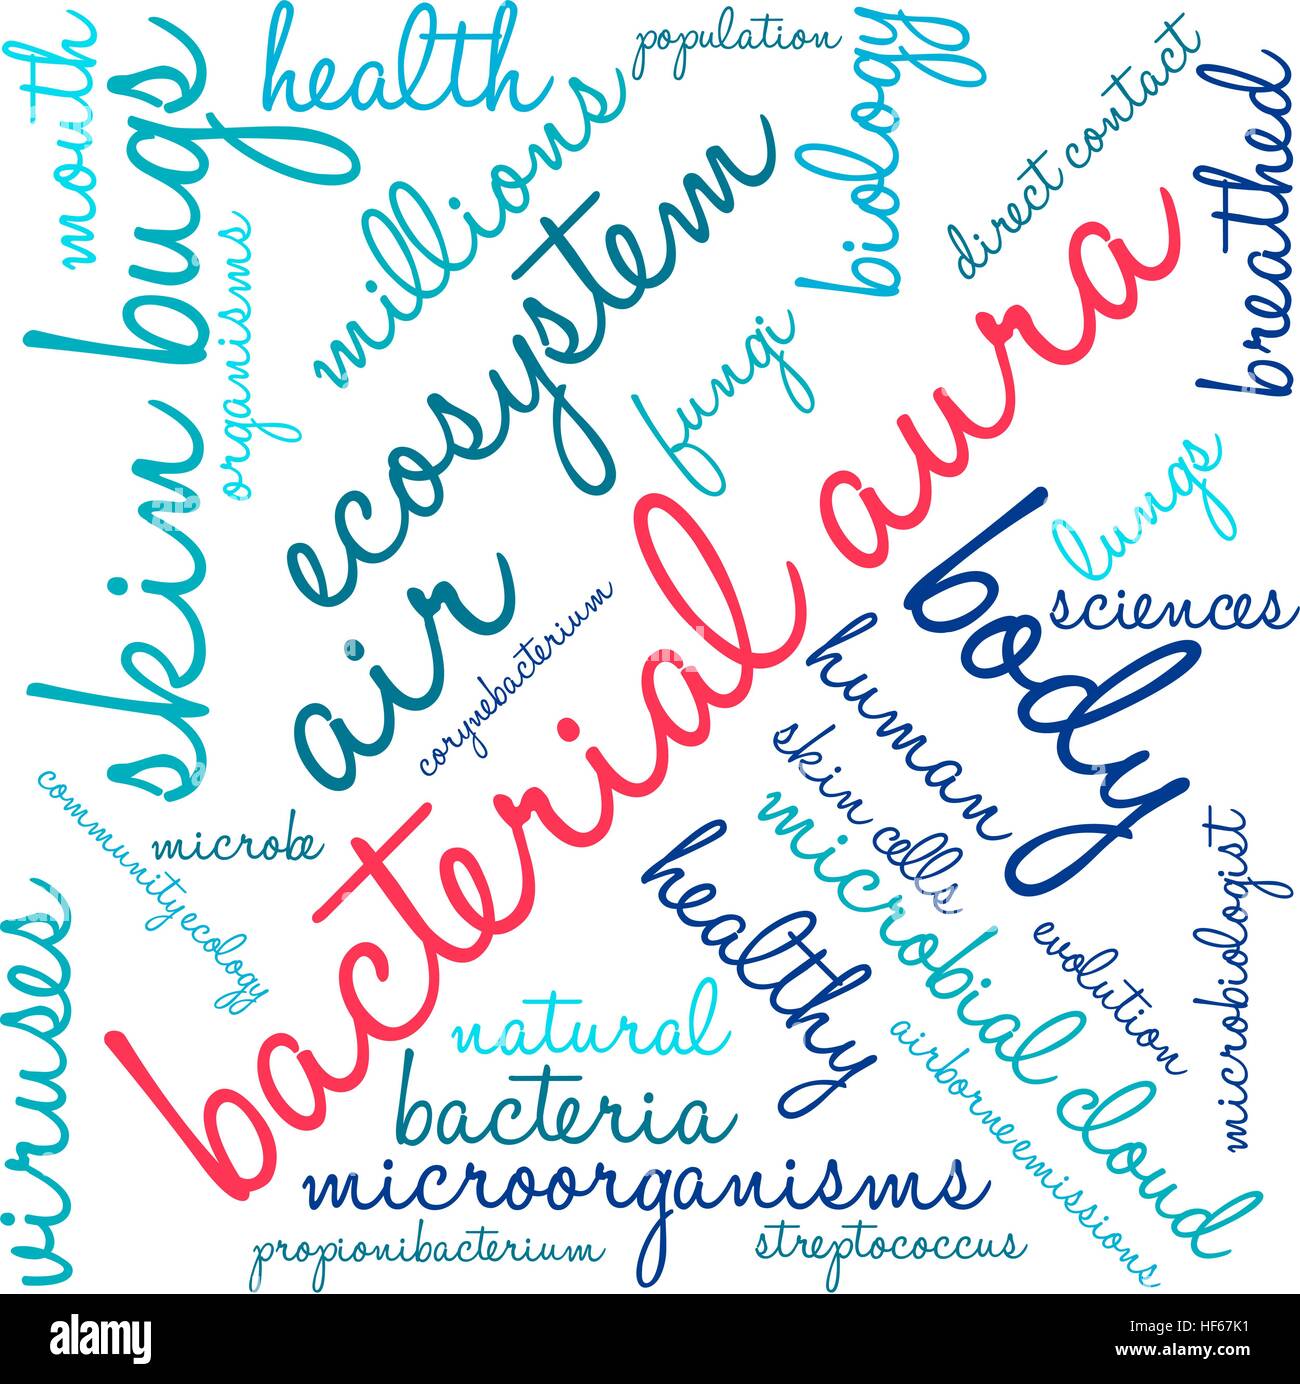 mouth
skin bugs
health
population
millions
biology
direct contact
breathed
organisms
ecosystem
fungi
bacterial aura
lungs
air
body
sciences
corynebacterium
human
skin cells
microbial cloud
communityecology
microbe
healthy
evolution
microbiologist
viruses
natural
airborneemissions
bacteria
microorganisms
propionibacterium
streptococcus
alamy
a
alamy
a
alamy
Image ID: HF67K1
www.alamy.com